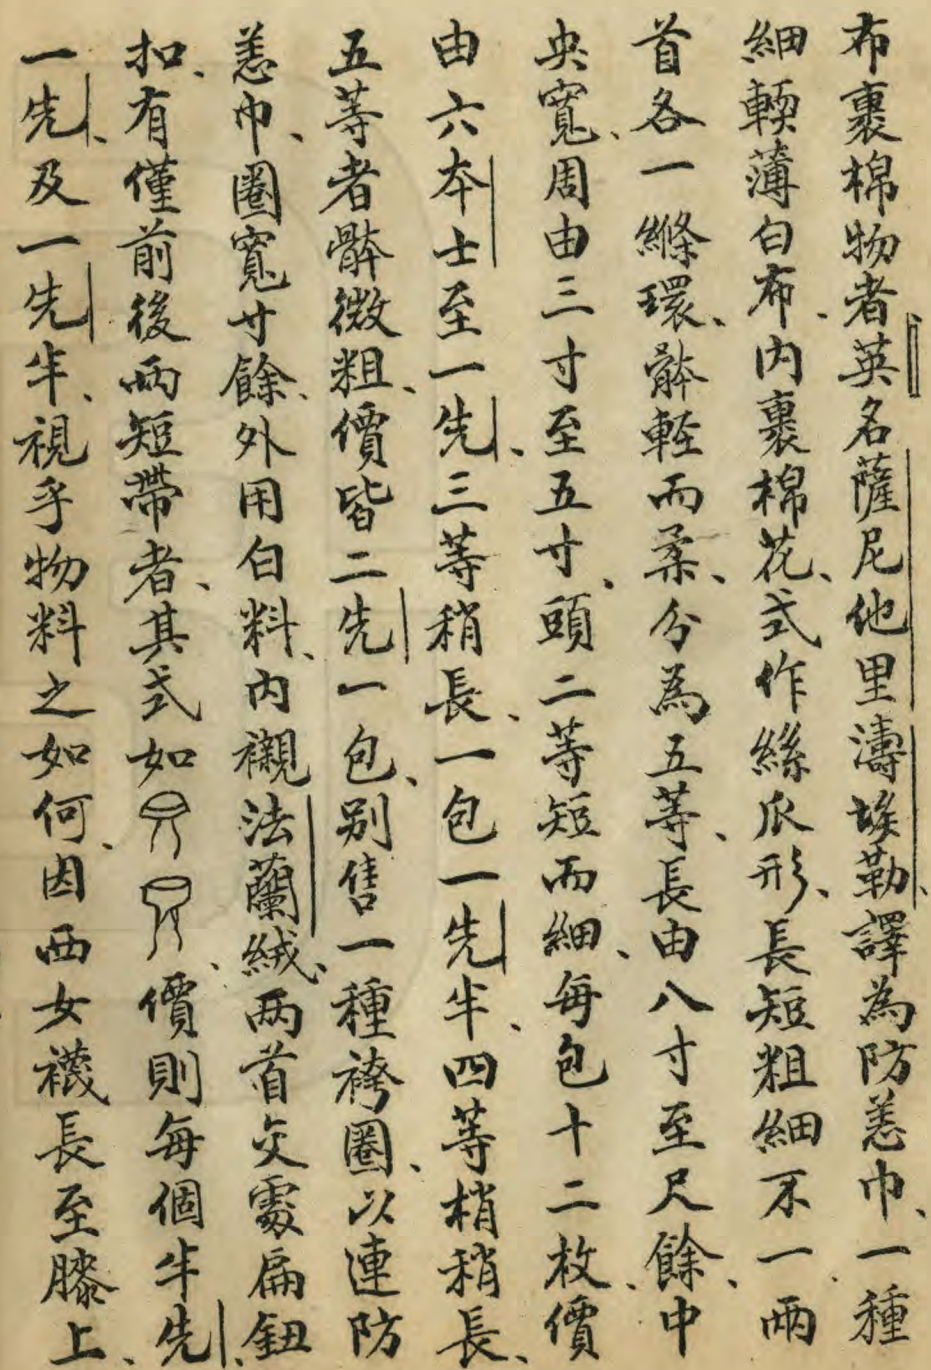 布裹棉物者英名薩尼他里濤埃勒、譯為防恙巾、一種
細輭薄白布、内裹棉花、式作絲瓜形、長短粗細不一、兩
首各一縧環、骵輕而柔、分為五等、長由八寸至尺餘、中
央寬、周由三寸至五寸、頭二等短而細、每包十二枚、價
由六本士至一先、三等稍長、一包一先半、四等梢稍長、
五等者骵微粗、價皆二先一包、别售一種袴圈、以連防
恙巾、圈寬寸餘、外用白料、内襯法蘭絨、两首交處扁鈕
扣、有僅前後兩短帶者、其式如、價則每個半先、
一先、及一先半、視乎物料之如何、因西女襪長至膝上、